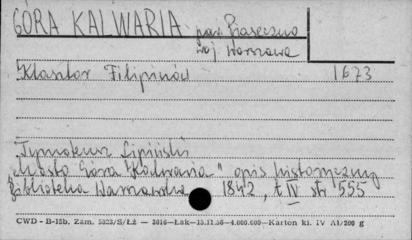 GÓRA KALWARIA pow. Piaseczno
woj. Warszawa
Klasztor Filipinów 1673
Tymoteusz Lipiński
"Miasto Góra Kalwaria" opis historyczny
Biblioteka Warszawska 1842, t. IV str. 555
CWD - B-15b. Zam. 5323/S/ŁŻ — 3016—Łak—15.11.56—4.000.000—Karton kl. IV A1/200 g